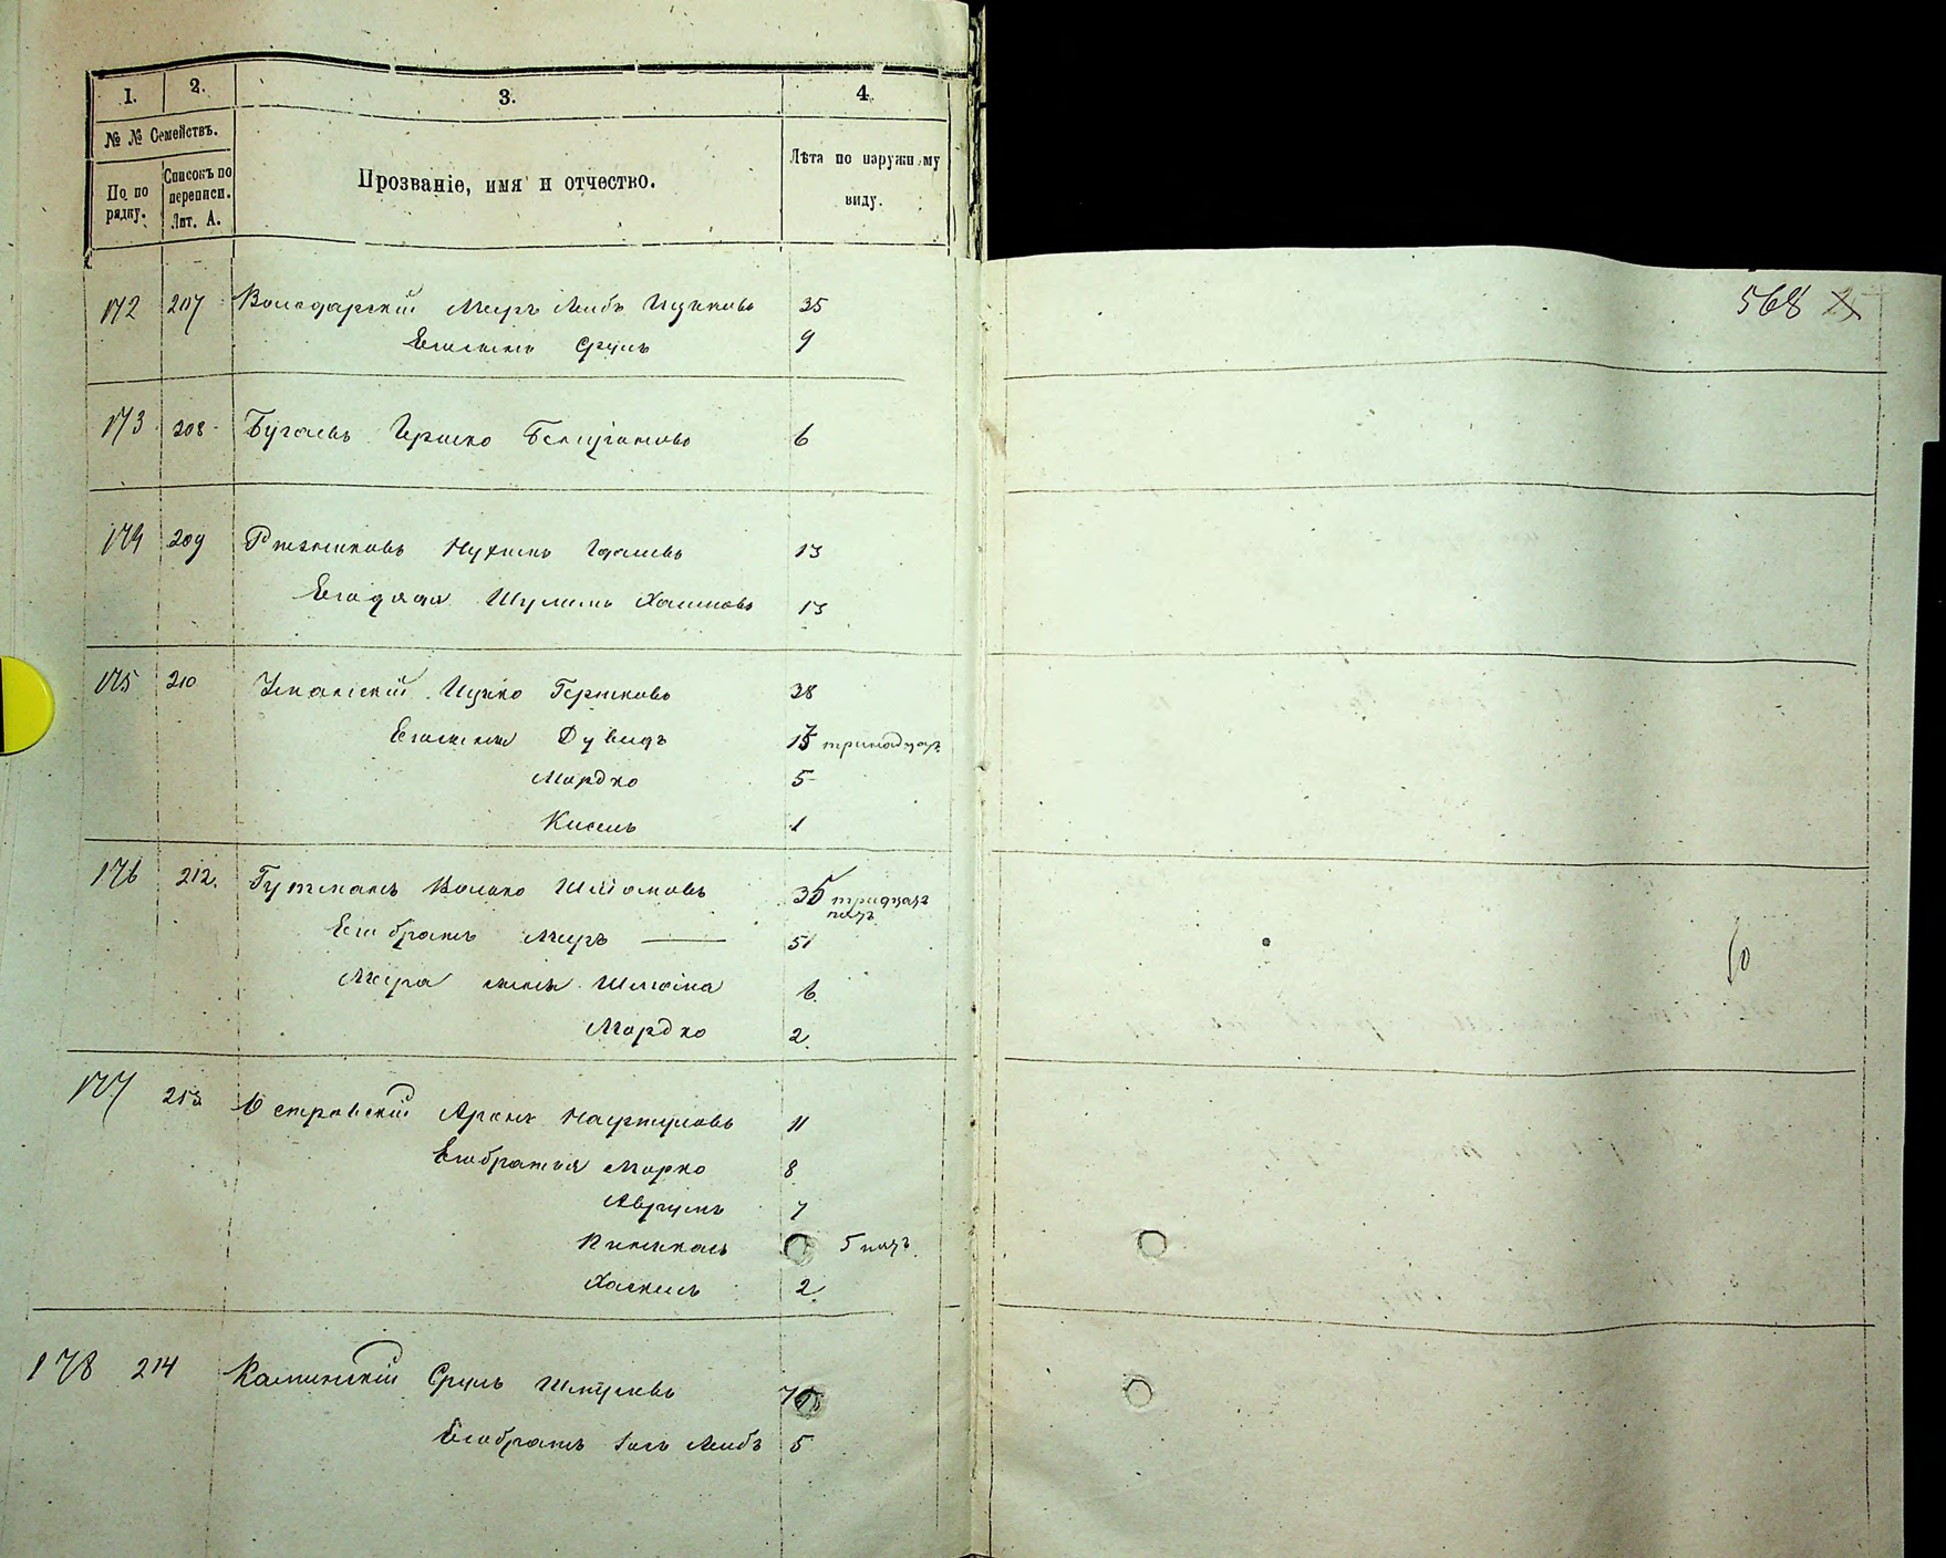 1. 2. 3. 4.
№ № Семействъ.
По по рядку.
Списокъ по переписи. Лит. А.
Прозваніе, имя и отчество.
Лѣта по наружному виду.
568
172 207 Володарскій Меръ Лейбъ Ицковъ 35
Его сынъ Сруль 9
173 208 Бугаевъ Гершко Бенціоновъ 6
174 209 Рѣзниковъ Нухимъ 13
Его дядя Шулимъ Хаимовъ 13
175 210 Уманскій Ицко Гершковъ 38
Его сынъ Дувидъ 13 тринадцат
Мордко 5
Кисель 1
176 212. Гутманъ Волько Шліомовъ 35 тридцат
пят
Его братъ Меръ — 51
Мера сынъ Шліома 6.
Мордко 2.
177 213 Островскій Аронъ Нафтуловъ 11
Его братья Морко 8
Аврумъ 7
Пинхасъ 5 пят
Хаскель 2.
178 214 Каминскій Сруль Шмулевъ
Его братъ Лейбъ 5